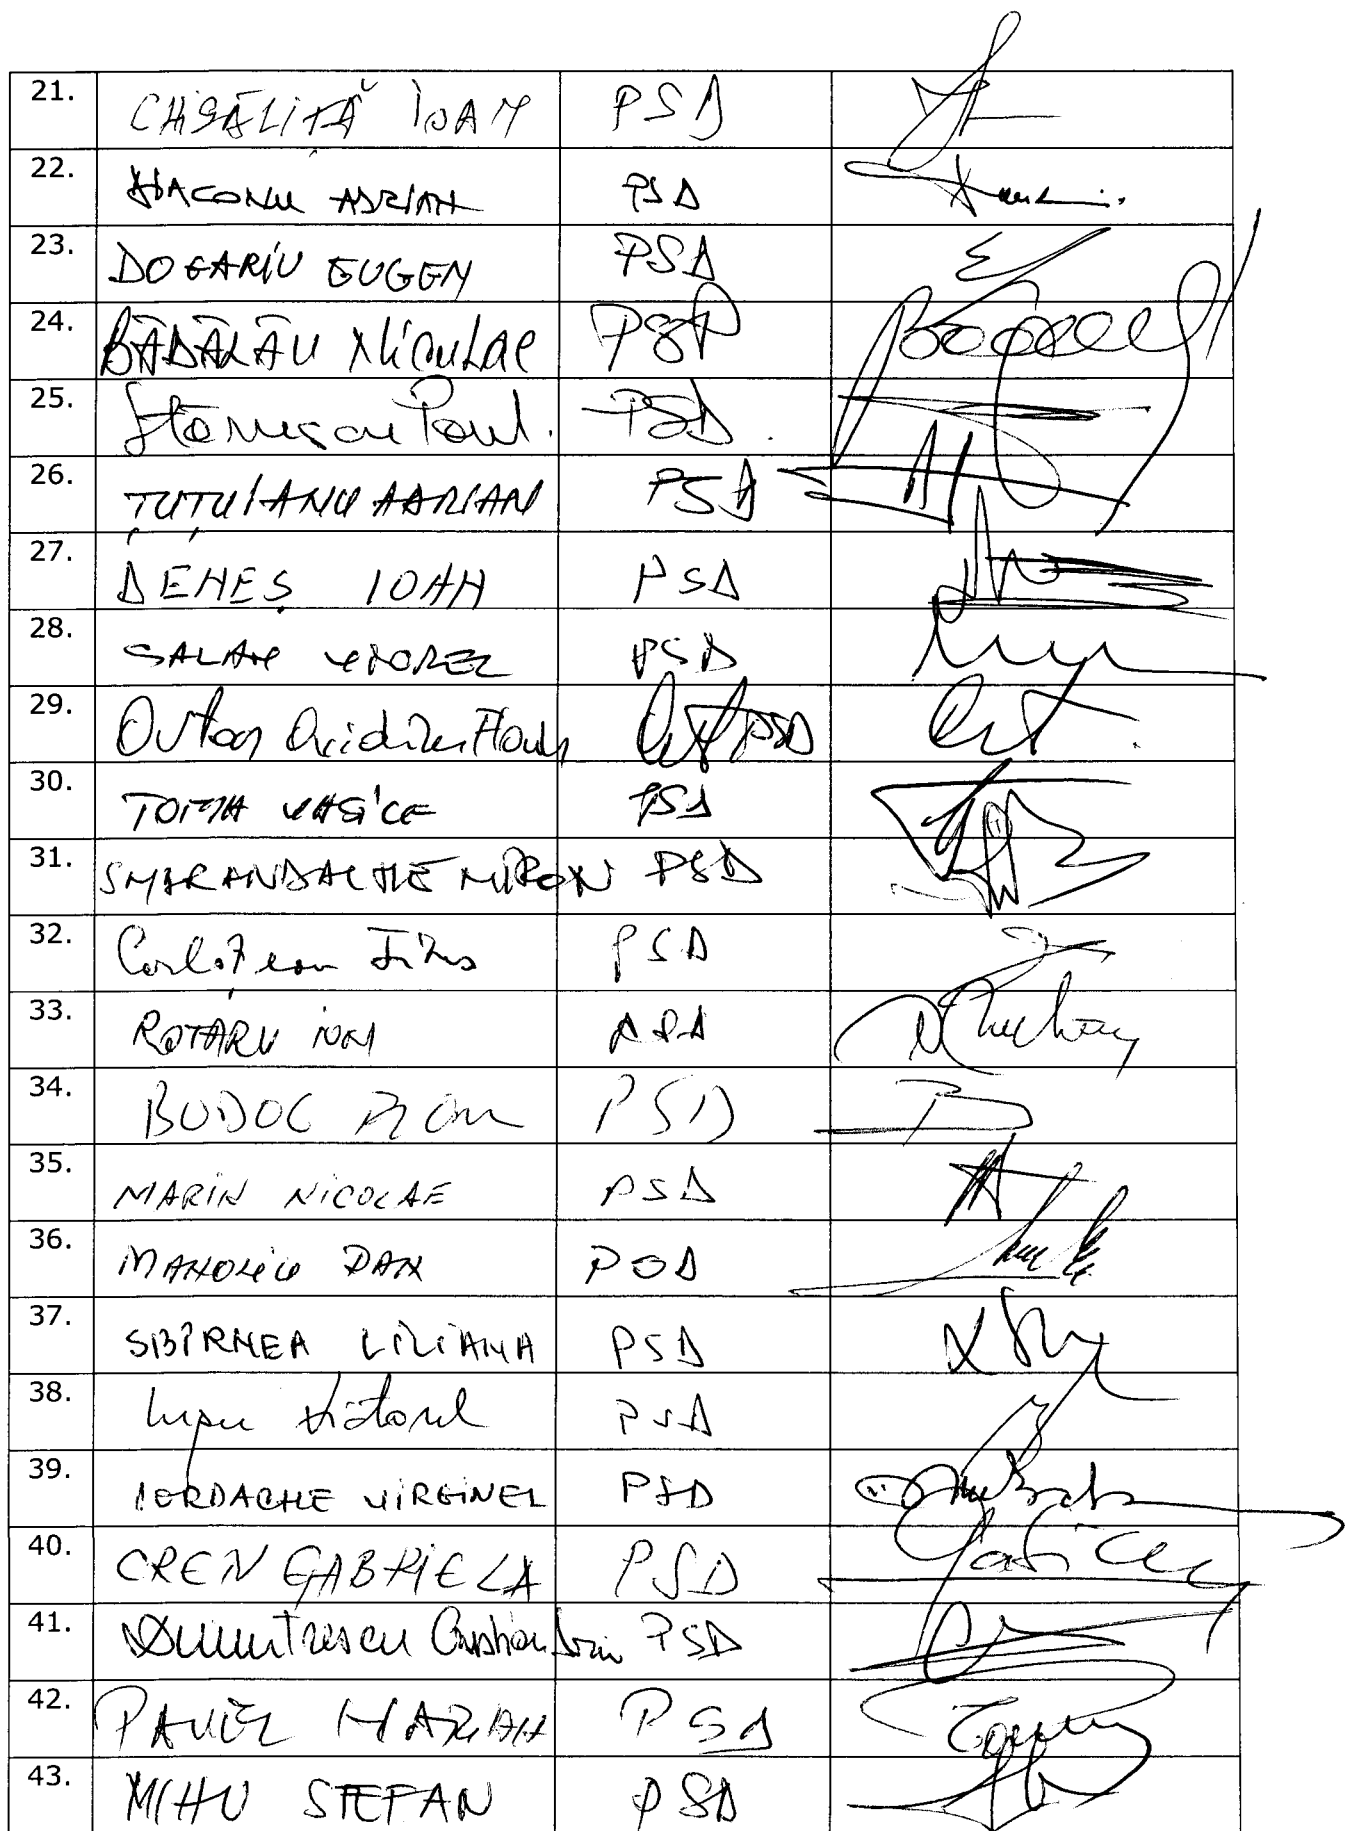 21. CHISĂLIȚĂ IOAN PSD
22. DIACONU ADRIAN PSD
23. DOGARIU EUGEN PSD
24. BĂDĂLĂU Niculae PSD
25. Stănescu Paul. PSD.
26. ȚUȚUIANU ADRIAN PSD
27. DENEȘ IOAN PSD
28. SALAN VIOREL PSD
29. PSD
30. TOMA VASILE PSD
31. SMARANDACHE MIRON PSD
32. Corlățean Titus PSD
33. ROTARU ION
34. BUDOC PSD
35. MARIN NICOLAE PSD
36. MANOLIU DAN PSD
37. SBÎRNEA LILIANA PSD
38. Lupu Victorel PSD
39. IORDACHE VIRGINEL PSD
40. CREȚU GABRIELA PSD
41. Dumitrescu Cristian Sorin PSD
42. PAVEL MARIAN PSD
43. MIHU STEFAN PSD